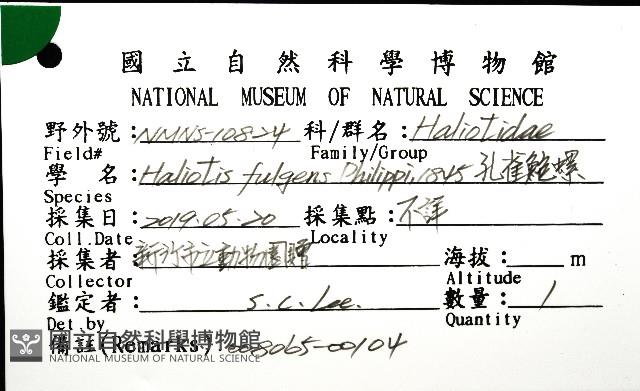 國立自然科學博物館
NATIONAL MUSEUM OF NATURAL SCIENCE
野外號：NMNS-108-24 科/群名：Haliotidae
Field# Family/Group
學 名：Haliotis fulgens Philippi, 1845 孔雀鮑螺
Species
採集日：2019.05.20 採集點：不詳
Coll.Date Locality
採集者：新竹市立動物園贈 海拔：____m
Collector Altitude
鑑定者：S.C. Lee. 數量：1
Det.by Quantity
備註(Remarks) 008065-00104
國立自然科學博物館
NATIONAL MUSEUM OF NATURAL SCIENCE